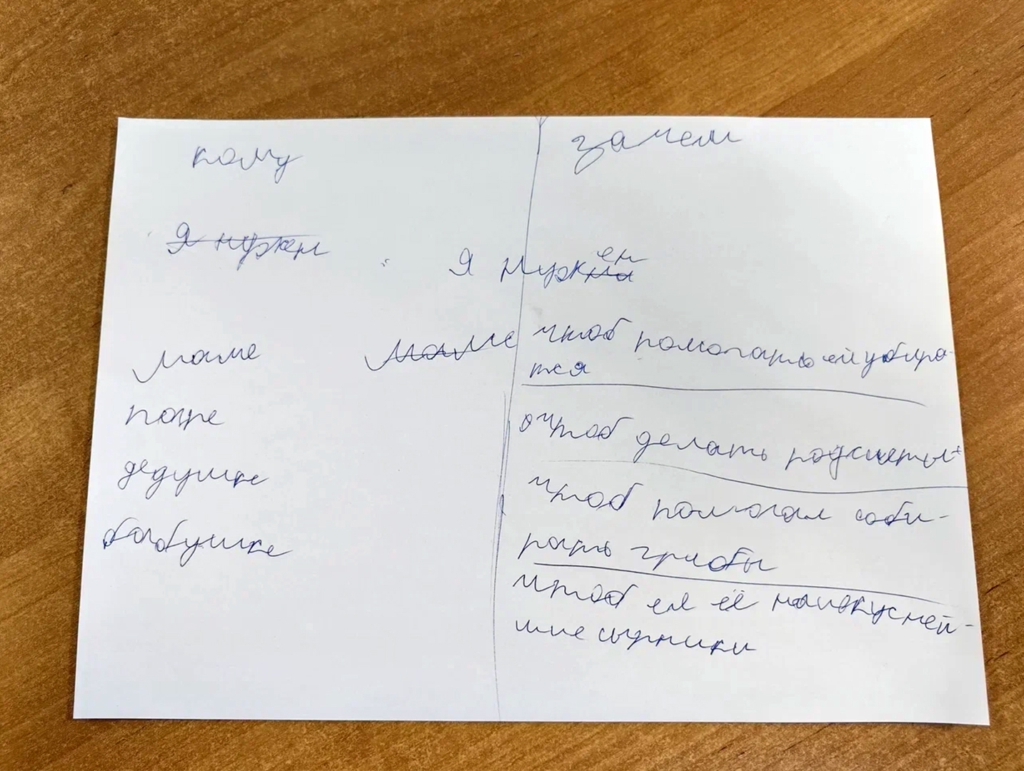 кому
зачем
Я нужен
Я нужен
маме
маме
чтоб помогать ей убира-
тся
папе
чтоб делать подсчеты
дедушке
чтоб помогал соби-
рать грибы
бабушке
чтоб ел её наивкусней-
шие сырники